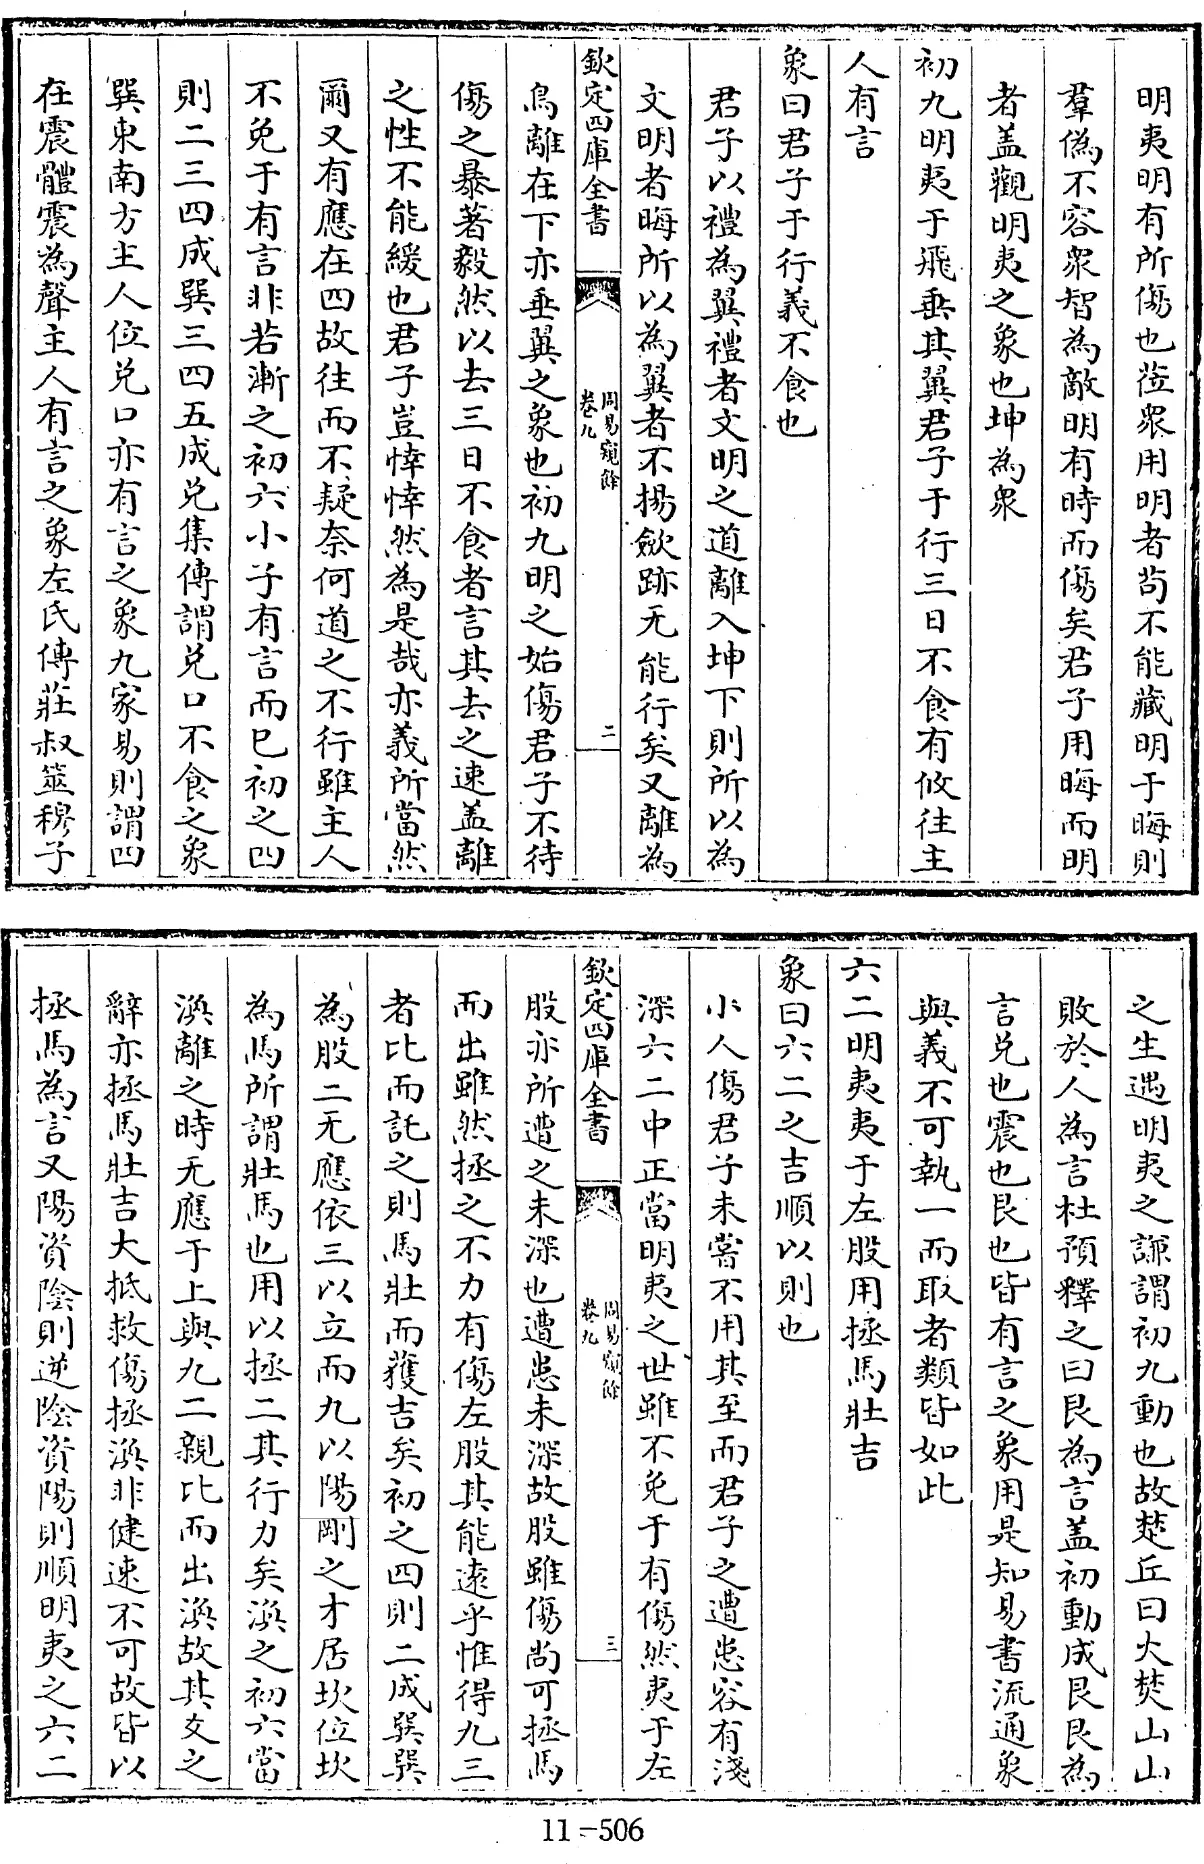 明夷明有所傷也莅衆用明者苟不能藏明于晦則
羣僞不容衆智為敵明有時而傷矣君子用晦而明
者盖觀明夷之象也坤為衆
初九明夷于飛垂其翼君子于行三日不食有攸往主
人有言
象曰君子于行義不食也
君子以禮為翼禮者文明之道離入坤下則所以為
文明者晦所以為翼者不揚斂跡无能行矣又離為
欽定四庫全書
周易窺餘
卷九
二
鳥離在下亦垂翼之象也初九明之始傷君子不待
傷之暴著毅然以去三日不食者言其去之速盖離
之性不能緩也君子豈悻悻然為是哉亦義所當然
爾又有應在四故往而不疑奈何道之不行雖主人
不免于有言非若漸之初六小子有言而已初之四
則二三四成巽三四五成兑集傳謂兑口不食之象
巽東南方主人位兑口亦有言之象九家易則謂四
在震體震為聲主人有言之象左氏傳莊叔筮穆子
之生遇明夷之謙謂初九動也故楚丘曰火焚山山
敗於人為言杜預釋之曰艮為言盖初動成艮艮為
言兑也震也艮也皆有言之象用是知易書流通象
與義不可執一而取者類皆如此
六二明夷夷于左股用拯馬壯吉
象曰六二之吉順以則也
小人傷君子未嘗不用其至而君子之遭患容有淺
深六二中正當明夷之世雖不免于有傷然夷于左
欽定四庫全書
周易窺餘
卷九
三
股亦所遭之未深也遭患未深故股雖傷尚可拯馬
而出雖然拯之不力有傷左股其能遠乎惟得九三
者比而託之則馬壯而獲吉矣初之四則二成巽巽
為股二无應依三以立而九以陽剛之才居坎位坎
為馬所謂壯馬也用以拯二其行力矣渙之初六當
渙離之時无應于上與九二親比而出渙故其爻之
辭亦拯馬壯吉大抵救傷拯渙非健速不可故皆以
拯馬為言又陽資陰則逆陰資陽則順明夷之六二
11-506